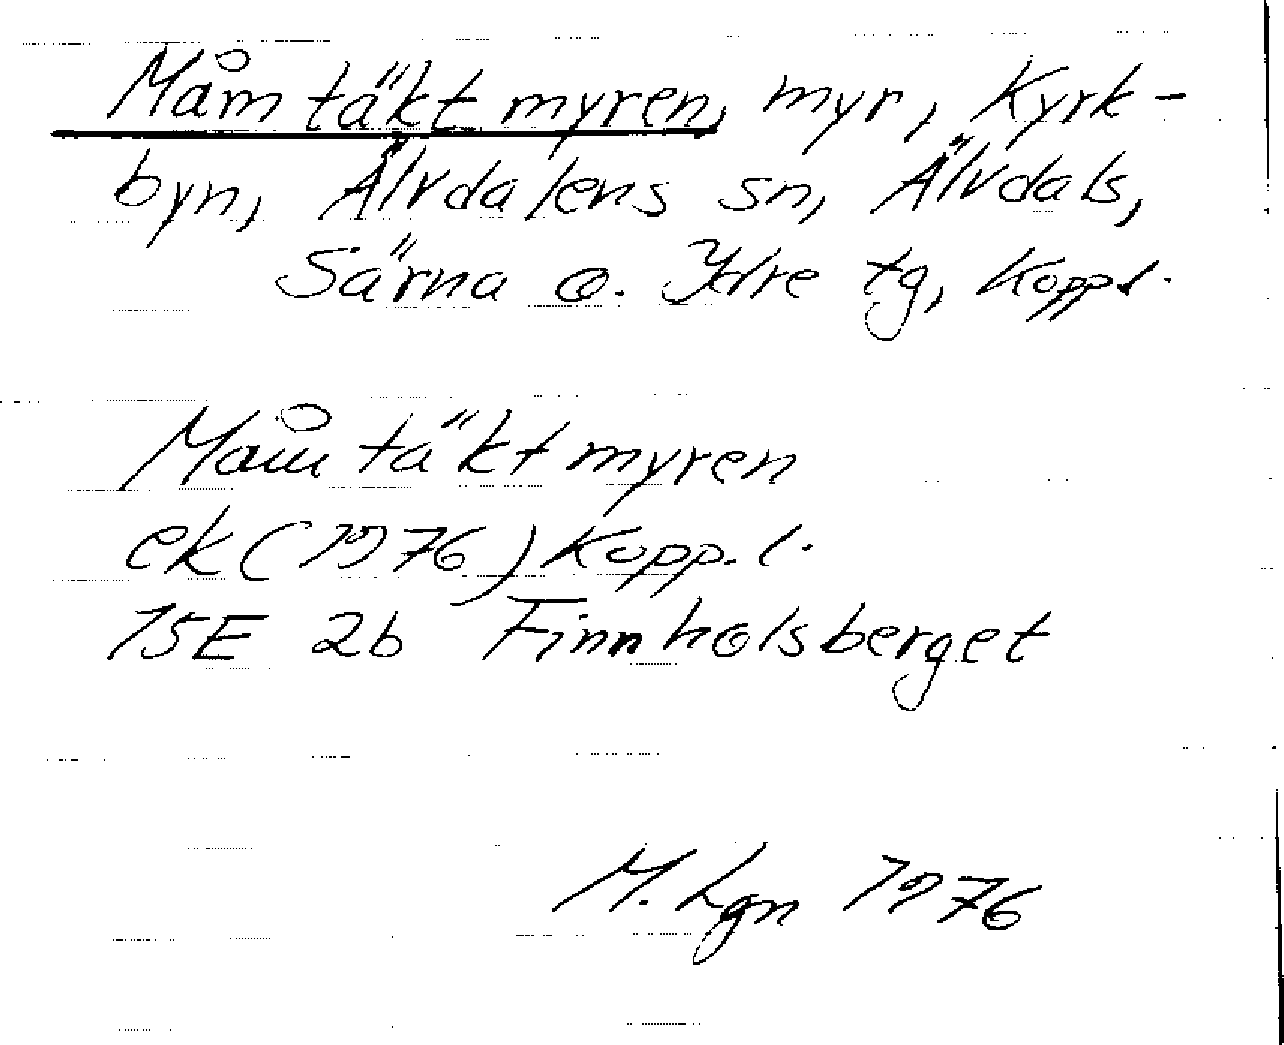 Måmtäktmyren, myr, Kyrk-
byn, Älvdalens sn, Älvdals,
Särna o. Idre tg, Kopp.l.
Måmtäktmyren
ek (1976) Kopp. l.
15E 2b Finnholsberget
M. Lgn 1976